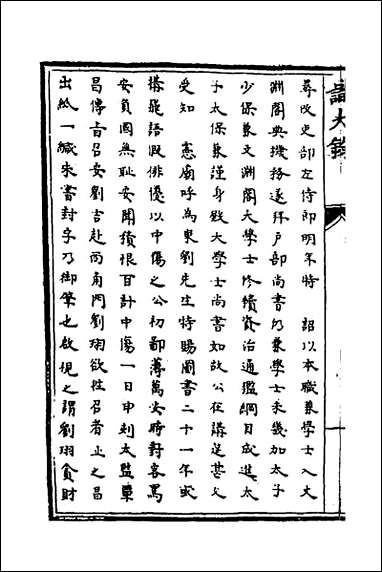 尋改吏部左侍郎明年特　詔以本職兼學士入文
淵閣典機務遂拜戶部尚書仍兼學士未幾加太子
少保兼文淵閣大學士修續資治通鑑綱目成進太
子太保兼謹身殿大學士尚書如故公在講筵甚久
受知　憲廟呼為東劉先生特賜圖書二十一年或
搆飛語假俳優以中傷之公初鄙薄萬安時對客罵
安負國無恥安聞積恨百計中傷一日申刻太監覃
昌傳旨召安劉吉赴西角門劉珝欲往召者止之昌
出於一緘朱書封字乃御筆也啟視之謂劉珝貪財